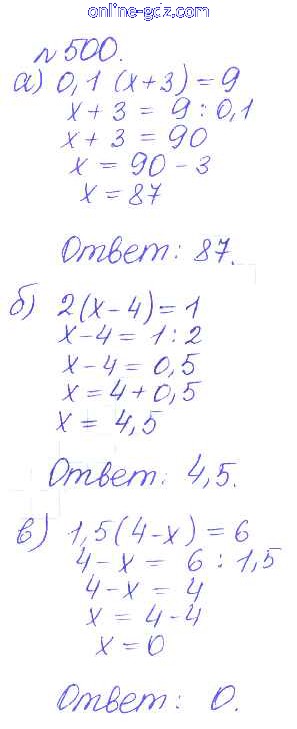 online-gdz.com
№500.
а) 0,1 (x+3) = 9
x + 3 = 9 : 0,1
x + 3 = 90
x = 90 - 3
x = 87
Ответ: 87.
б) 2(x-4) = 1
x-4 = 1 : 2
x-4 = 0,5
x = 4 + 0,5
x = 4,5
Ответ: 4,5.
в) 1,5(4-x) = 6
4-x = 6 : 1,5
4-x = 4
x = 4-4
x = 0
Ответ: 0.